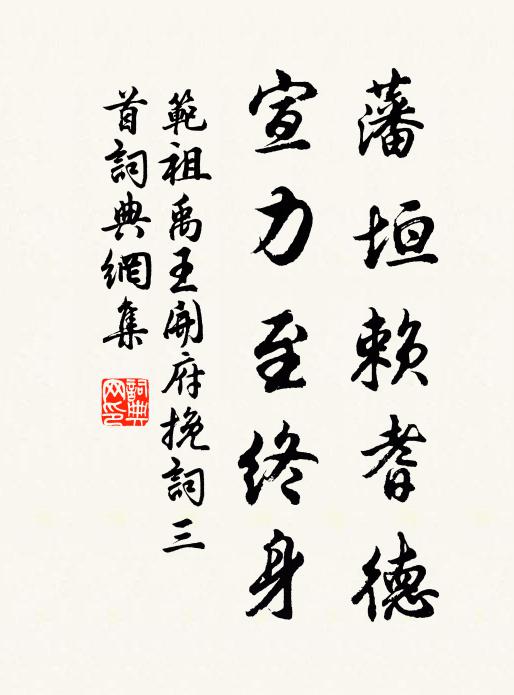 藩垣賴耆德
宣力至終身
範祖禹王開府挽詞三
首詞典網集
詞典
网印